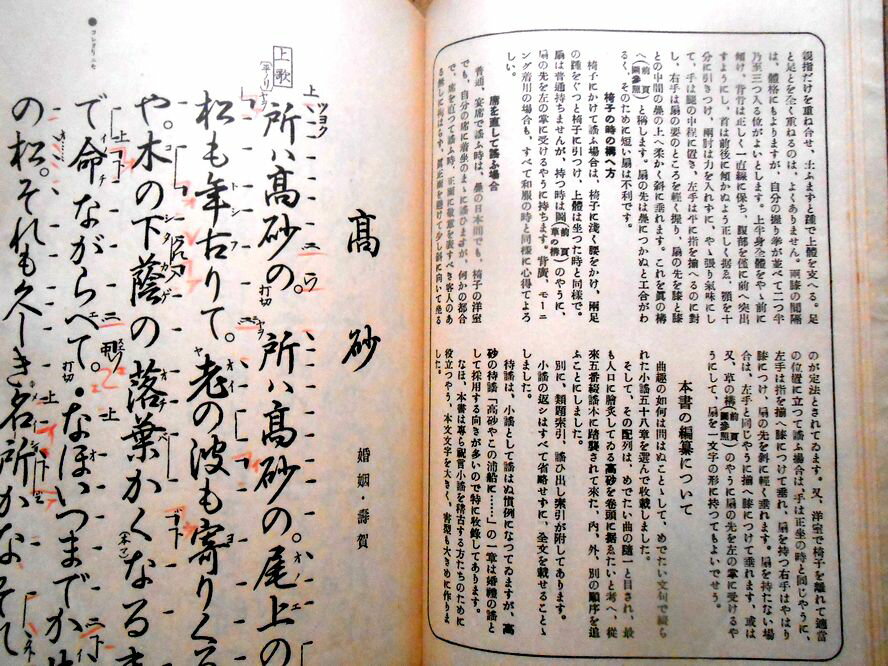 親指だけを重ね合せ、土ふまずと踵で上體を支へる。足
と足とを全く重ねるのは、よくありません。兩膝の間隔
は、體格にもよりますが、自分の握り拳が並べて二つ半
乃至三つ入る位がよいとします。上半身全體をやゝ前に
傾け、背骨は正しく一直線に保ち、腹部を僅に前へ突出
すやうにし、首は前後に傾かぬよう正しく据ゑ、顎を十
分に引きつけ、兩肘は力を入れずに、やゝ張り氣味にし
て、手は腿の中程に置き、左手は平に指を揃へるのに對
し、右手は扇の要のところを輕く握り、扇の先を膝と膝
との中間の疊の上へ柔かく斜に垂れます。これを眞の構
へ(前頁圖參照)と稱します。扇の先は疊につかぬと工合がわ
るく、そのために短い扇は不利です。
椅子の時の構へ方
椅子にかけて謠ふ場合は、椅子に淺く腰をかけ、兩足
の踵をぐつと椅子に引つけ、上體は坐つた時と同樣で。
扇は普通持ちませんが、持つ時は圖(前頁草の構)のやうに、
扇の先を左の掌に受けるやうに持ちます。背廣、モーニ
ング着用の場合も、すべて和服の時と同樣に心得てよろ
しい。
席を直して謠ふ場合
普通、宴席で謠ふ時は、疊の日本間でも、椅子の洋室
でも、自分の席に着坐のまゝに謠ひますが、何かの都合
で、席を直つて謠ふ時、正面に敬意を表すべき客人のあ
る無しに拘はらず、眞正面を避けて少し斜に向いて坐る
のが定法とされてゐます。又、洋室で椅子を離れて適當
の位置に立つて謠ふ場合は、手は正坐の時と同じやうに、
左手は指を揃へ膝につけて垂れ、扇を持つ右手はやはり
膝につけ、扇の先を斜に輕く垂れます。扇を持たない場
合は、左手と同じやうに揃へ膝につけて垂れます、或は
又、草の構(前頁圖參照)のやうに扇の先を左の掌に受けるや
うにして、扇を一文字の形に持つてもよいでせう。
本書の編纂について
曲趣の如何は問はぬことゝして、めでたい文句で綴ら
れた小謠五十八章を選んで收載しました。
そして、その配列は、めでたい曲の随一と目され、最
も人口に膾炙してゐる高砂を卷頭に据ゑたいと考へ、從
來五番綴謠本に踏襲されて來た、內、外、別の順序を追
ふことにしました。
別に、類題索引、謠ひ出し索引が附してあります。
小謠の返シはすべて省略せずに、全文を載せることゝ
しました。
待謠は、小謠として謠はぬ慣例になつてゐますが、高
砂の待謠「高砂やこの浦船に……」の一章は婚禮の謠と
して採用する向きが多いので特に收錄してあります。
なほ、本書は專ら祝言小謠を稽古する方たちのために
役立つやう、本文文字を大きく、書型も大きめに作りま
した。
高砂
婚姻・壽賀
上歌
上 ツヨク
所ハ高砂の。所ハ高砂の。尾上の
松も年古りて。老の波も寄りくる
や。木の下蔭の落葉かくなる
で命ながらへて。なほいつまでか
の松。それも久しき名所かな